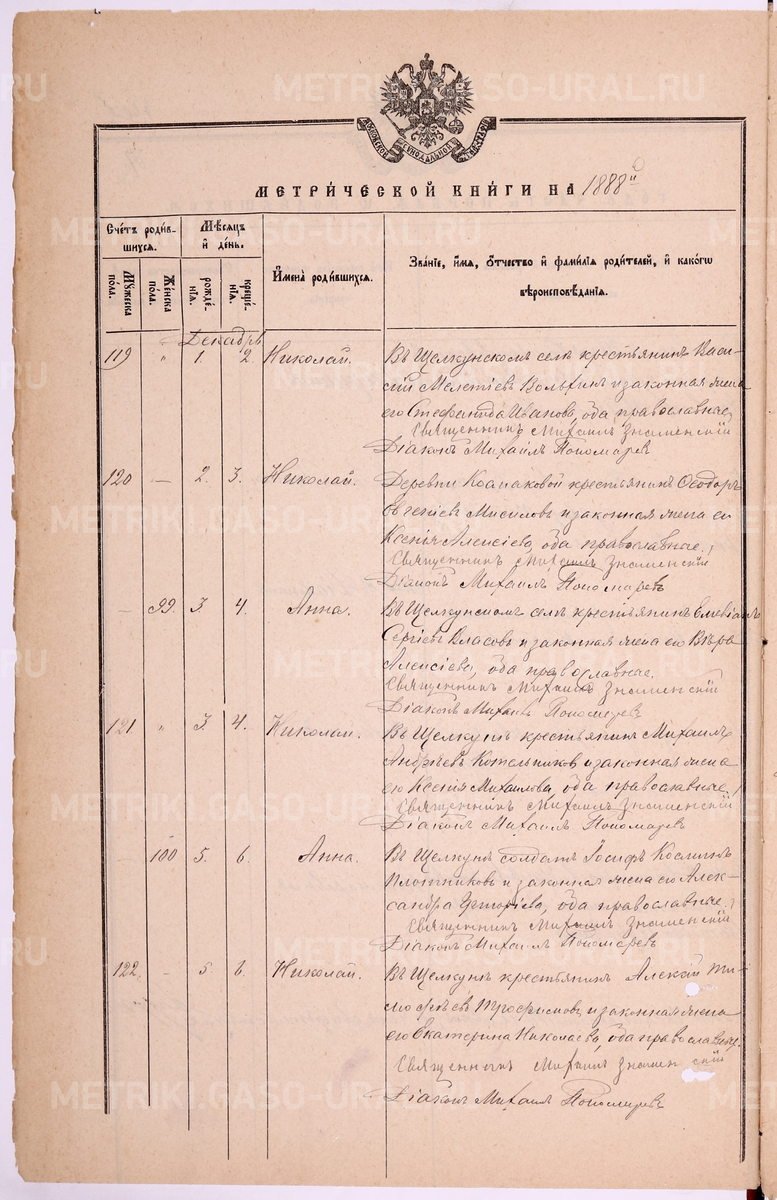 МОСКОВСКОЙ СѴНОДАЛЬНОЙ ТИПОГРАФІИ
МЕТРИЧЕСКОЙ КНИГИ НА 1888й
Счетъ родившихся.
Мѣсяцъ и день.
Имена родившихся.
Званіе, имя, отчество и фамилія родителей, и какогω вѣроисповѣданія.
Мужеска пола.
Женска пола.
рожденія.
крещенія.
Декабрь
119 " 1 2. Николай. Въ Щелкунскомъ селѣ крестьянинъ Васи-
лій Мелетіевъ и законная жена
его Стефанида Иванова, оба православные,
Священникъ Михаилъ Знаменскій
Діаконъ Михаилъ Пономаревъ
120 — 2. 3. Николай. Деревни Космаковой крестьянинъ Ѳеодоръ
и законная жена его
Ксенія Алексіева, оба православные,
Священникъ Михаилъ Знаменскій
Діаконъ Михаилъ Пономаревъ
— 99. 3. 4. Анна. Въ Щелкунскомъ селѣ крестьянинъ
Сергіевъ Власовъ и законная жена его Вѣра
Алексіева, оба православные.
Священникъ Михаилъ Знаменскій
Діаконъ Михаилъ Пономаревъ
121 " 3. 4. Николай. Въ Щелкунѣ крестьянинъ Михаилъ
Андреевъ Котельниковъ и законная жена
его Ксенія Михаилова, оба православные,
Священникъ Михаилъ Знаменскій
Діаконъ Михаилъ Пономаревъ
— 100 5. 6. Анна. Въ Щелкунѣ солдатъ Іосифъ Козминъ
Плотниковъ и законная жена его Алек-
сандра Григоріева, оба православные.
Священникъ Михаилъ Знаменскій
Діаконъ Михаилъ Пономаревъ
122. — 5. 6. Николай. Въ Щелкунѣ крестьянинъ Алексій Ти-
моѳѣевъ Трофимовъ и законная жена
его Екатерина Николаева, оба православные.
Священникъ Михаилъ Знаменскій
Діаконъ Михаилъ Пономаревъ
METRIKI.GASO-URAL.RU